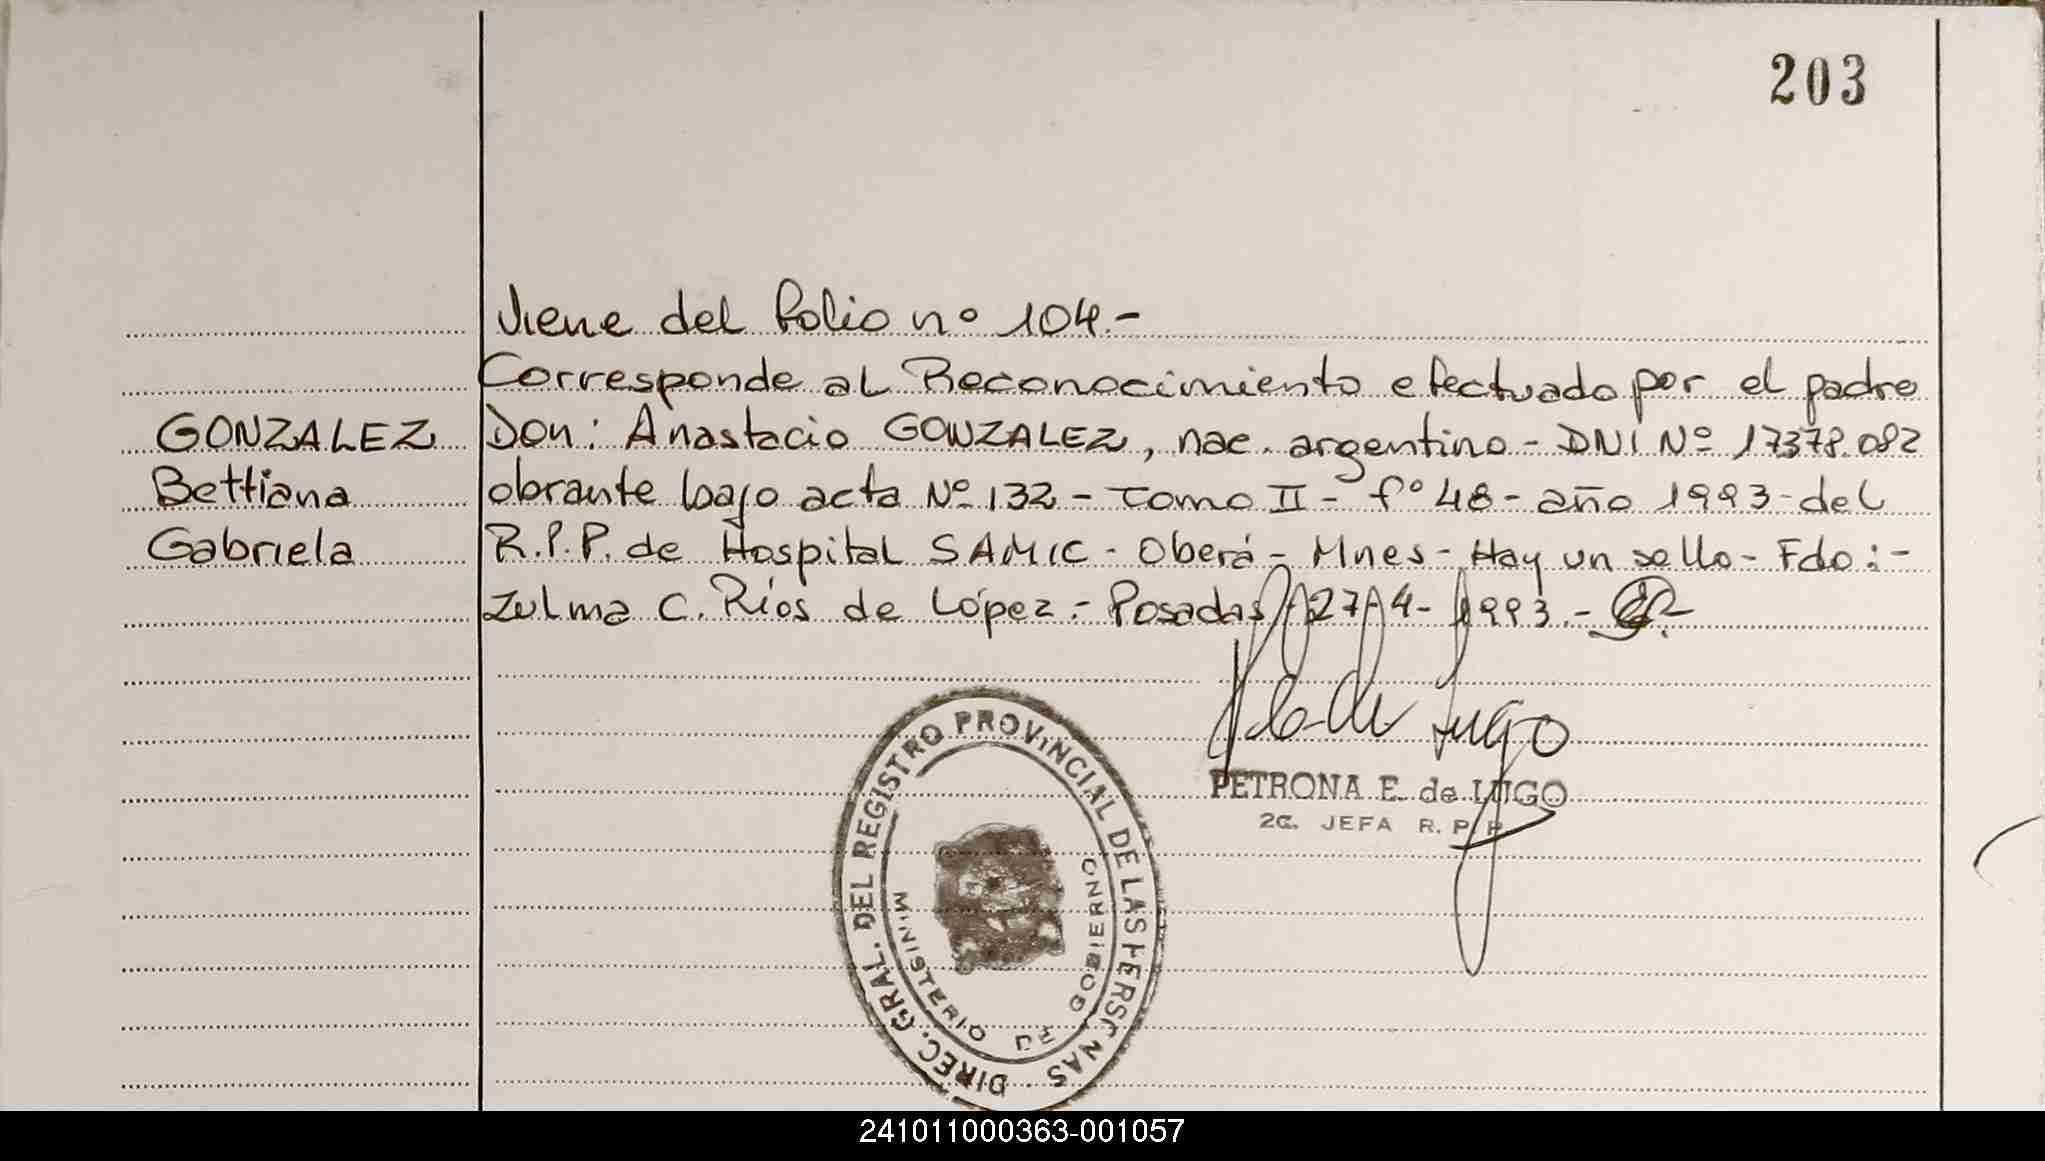 203
Viene del folio nº 104.-
Corresponde al Reconocimiento efectuado por el padre
GONZALEZ Don: Anastacio GONZALEZ, nac. argentino - DNI Nº 17378.082
Bettiana obrante bajo acta Nº 132 - Tomo II - fº 48 - año 1993 - del
Gabriela R.P.P. de Hospital SAMIC - Oberá - Mnes - Hay un sello - Fdo: -
Zulma C. Ríos de López.- Posadas, 27-4-1993.-
PETRONA E. de LUGO
2a. JEFA R. P. P.
DIREC. GRAL. DEL REGISTRO PROVINCIAL DE LAS PERSONAS
MINISTERIO DE GOBIERNO
241011000363-001057